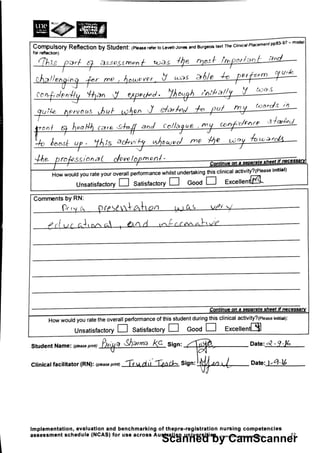 une
Compulsory Reflection by Student: (Please refer to Levett-Jones and Burgess text The Clinical Placement pp93-97 – model
for reflection)
This part of assessment was the most important and
challenging for me, however, I was able to perform quite
confidently than I expected. Though initially I was
quite nervous but when I started to put my words in
front of health care staff and collague, my confidence started
to boost up. This activity showed me the way towards
the professional development.
Continue on a separate sheet if necessary
How would you rate your overall performance whilst undertaking this clinical activity?(Please initial)
Unsatisfactory Satisfactory Good Excellent
Comments by RN:
Priya presentation was very
educational and informative
Continue on a separate sheet if necessary
How would you rate the overall performance of this student during this clinical activity?(Please initial):
Unsatisfactory Satisfactory Good Excellent
Student Name: (please print) Priya Sharma KC Sign: Date: 2.9.16
Clinical facilitator (RN): (please print) Sign: Date:
Implementation, evaluation and benchmarking of thepre-registration nursing competencies
assessment schedule (NCAS) for use across
Scanned by CamScanner